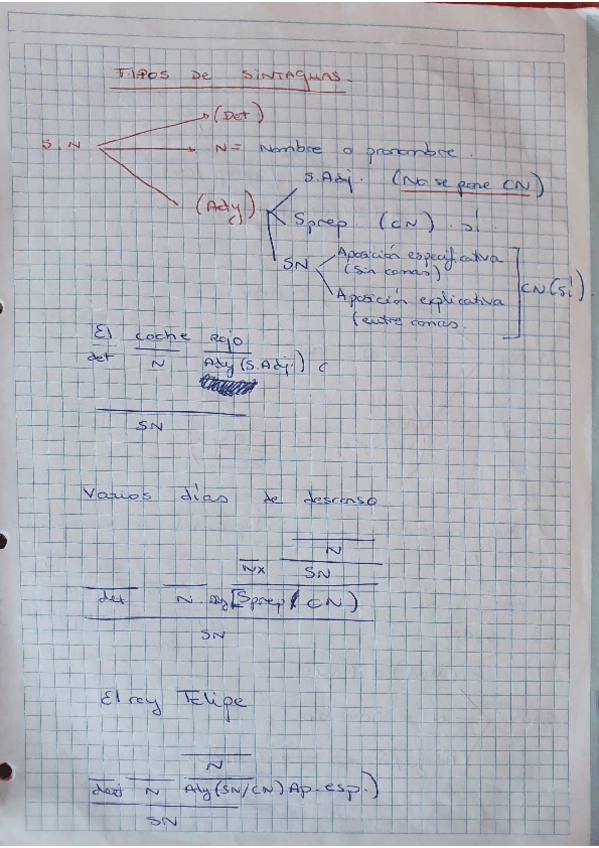 TIPOS DE SINTAGMAS.
(Det)
S.N N = Nombre o pronombre.
S.Adj. (No se pone CN)
(Ady)
Sprep (CN). sí.
SN Aposición especificativa
(sin comas)
CN (sí).
Aposición explicativa
(entre comas.
El coche rojo
det N Ady (S.Adj.)
SN
Varios días de descanso
N
Nx SN
det N Ady [Sprep / CN)
SN
El rey Felipe
N
det N Ady (SN/CN) Ap. esp.)
SN